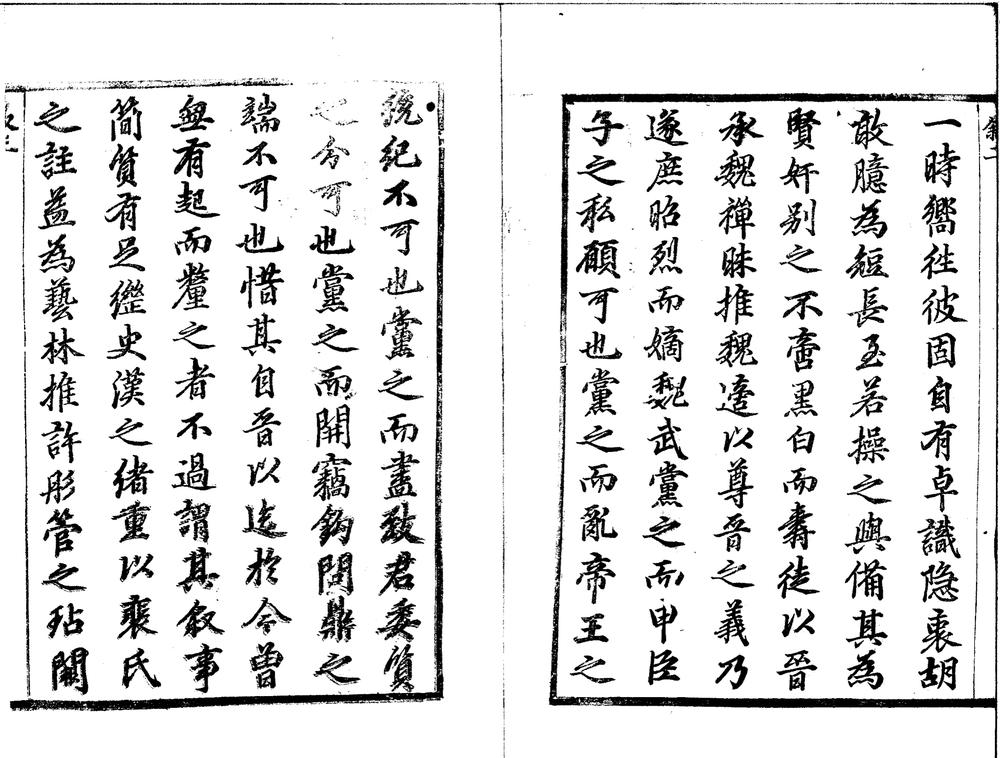 敘二
一時嚮往彼固自有卓識隐衷胡
敢臆為短長至若操之與備其為
賢奸别之不啻黑白而壽徒以晉
承魏禪昧推魏遡以尊晋之義乃
遂庶昭烈而嫡魏武黨之而申臣
子之私顧可也黨之而亂帝王之
統紀不可也黨之而盡致君委質
之分可也黨之而開竊鈎問鼎之
端不可也惜其自晋以迄於今曾
無有起而釐之者不過謂其叙事
簡質有足繼史漢之緒重以裴氏
之註益為藝林推許彤管之玷闕